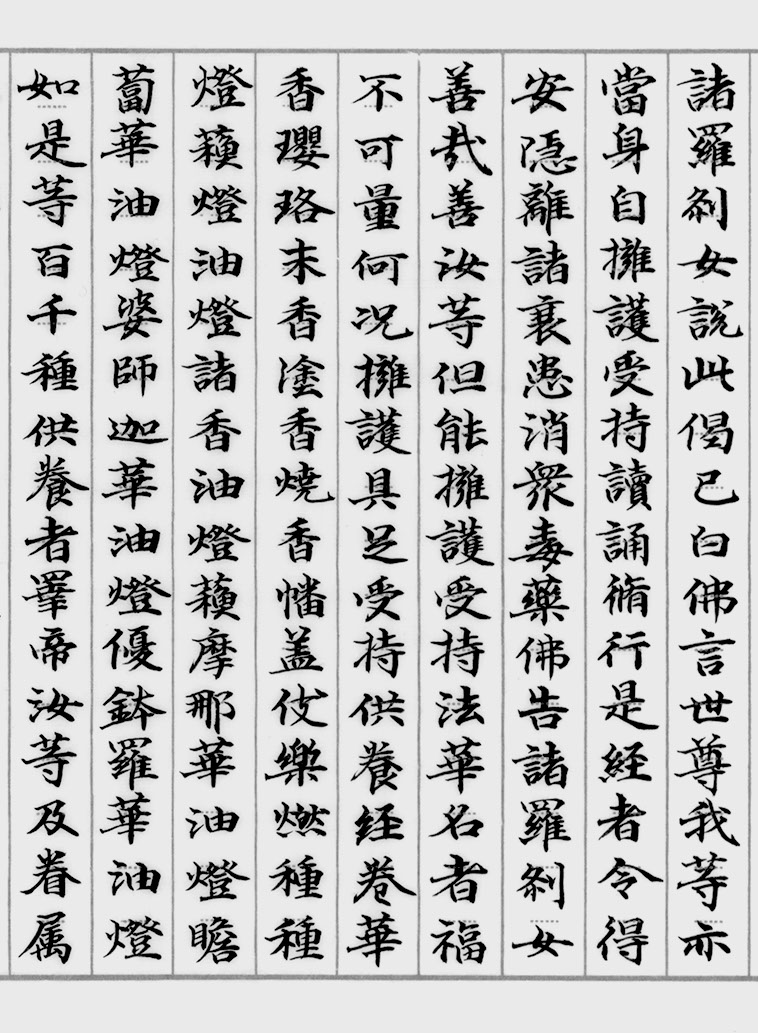 諸羅刹女說此偈已白佛言世尊我等亦
當身自擁護受持讀誦脩行是経者令得
安隱離諸衰患消衆毒藥佛告諸羅刹女
善哉善汝等但能擁護受持法華名者福
不可量何况擁護具足受持供養経卷華
香瓔珞末香塗香燒香幡盖伎樂燃種種
燈蘓燈油燈諸香油燈蘓摩那華油燈瞻
蔔華油燈婆師迦華油燈優鉢羅華油燈
如是等百千種供養者睪帝汝等及眷属